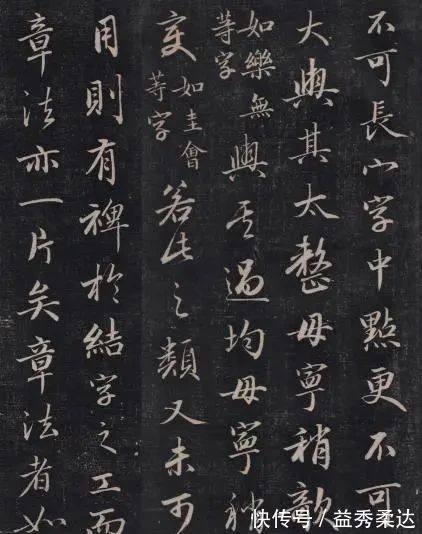 不可長小字中點更不可
大與其太整毋寧稍欹
如樂無
等字
與其過均毋寧稍
变
如圭會
等字
若此之類又未可
用則有裨於結字之工而
章法亦一片矣章法者如
快传号/益秀柔达